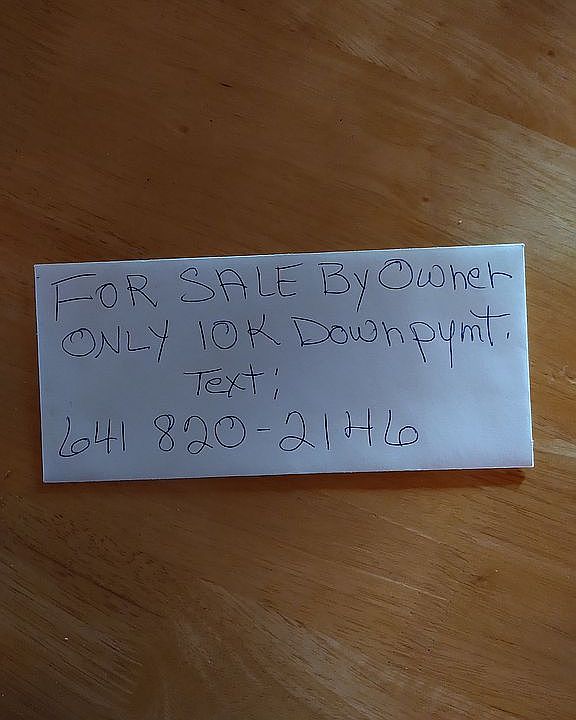 FOR SALE By Owner
ONLY 10K Downpymt.
Text;
641 820-2146